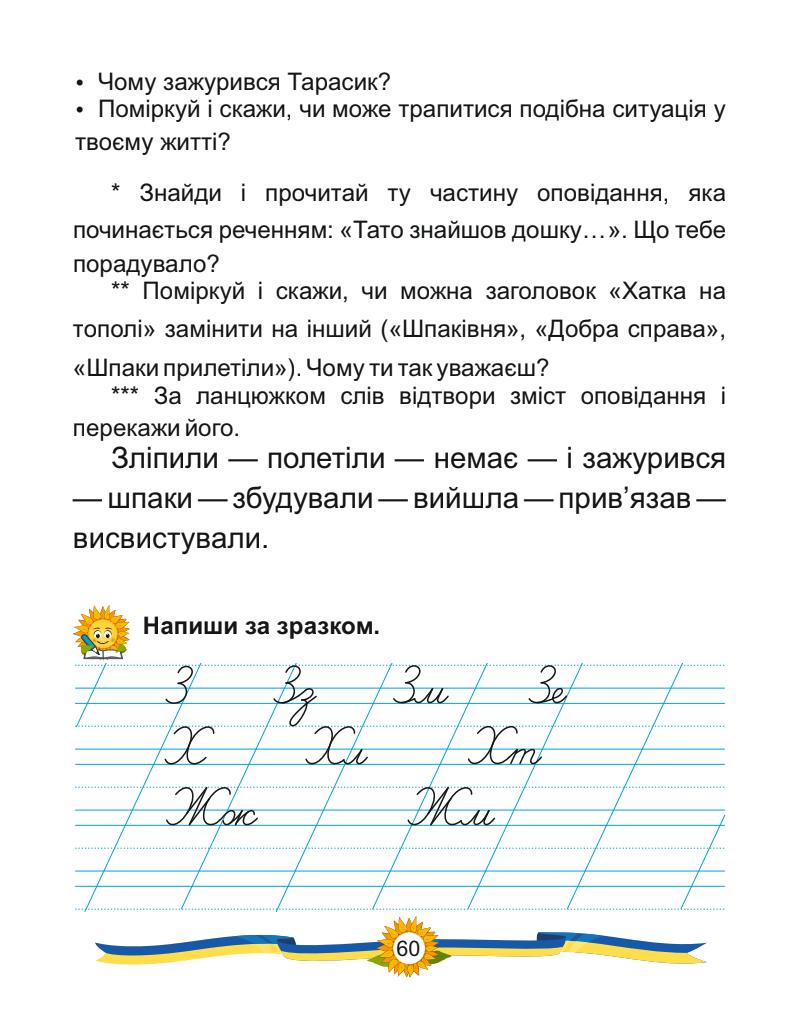 • Чому зажурився Тарасик?
• Поміркуй і скажи, чи може трапитися подібна ситуація у
твоєму житті?
* Знайди і прочитай ту частину оповідання, яка
починається реченням: «Тато знайшов дошку…». Що тебе
порадувало?
** Поміркуй і скажи, чи можна заголовок «Хатка на
тополі» замінити на інший («Шпаківня», «Добра справа»,
«Шпаки прилетіли»). Чому ти так уважаєш?
*** За ланцюжком слів відтвори зміст оповідання і
перекажи його.
Зліпили — полетіли — немає — і зажурився
— шпаки — збудували — вийшла — прив’язав —
висвистували.
Напиши за зразком.
З Зз Зи Зе
Х Хл Хт
Жж Жи
60